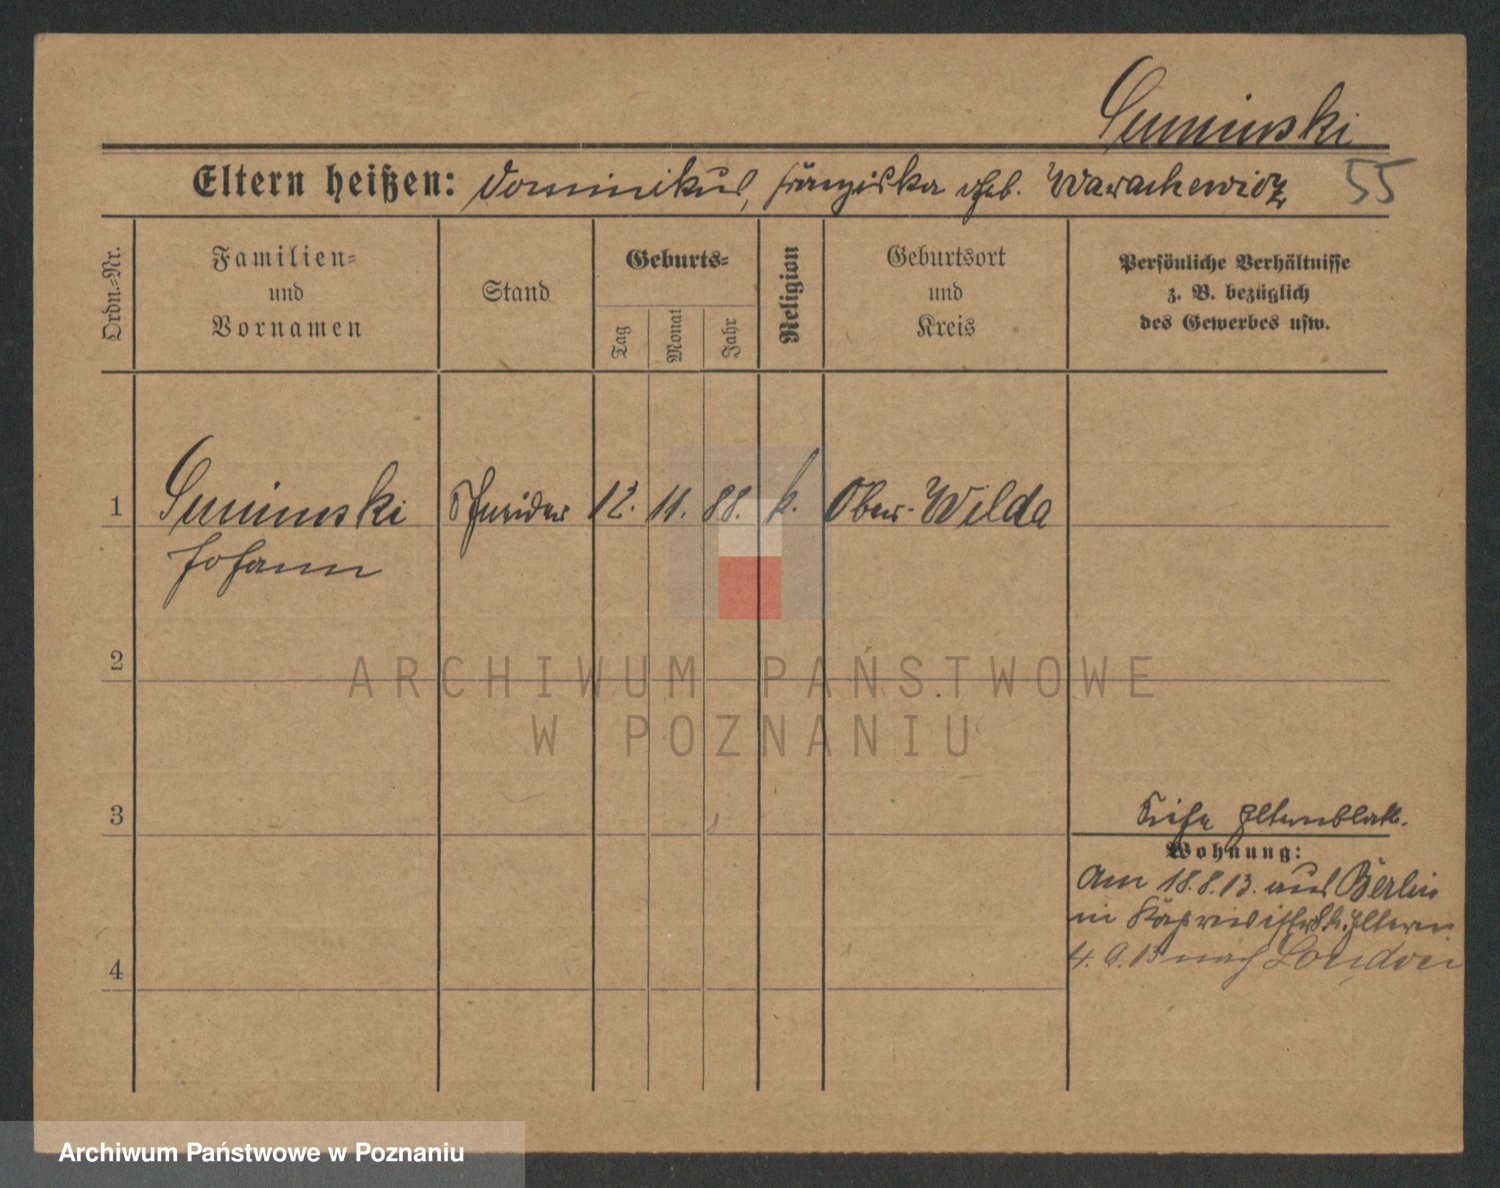 Suminski
Eltern heißen: Dominikus, Franziska geb. Warachewicz 55
Ordn.-Nr.
Familien-
und
Vornamen
Stand
Geburts-
Tag
Monat
Jahr
Religion
Geburtsort
und
Kreis
Persönliche Verhältnisse
z. B. bezüglich
des Gewerbes usw.
1 Suminski Schneider 12. 11. 88. k. Ober-Wilda
Johann
2
ARCHIWUM PAŃSTWOWE
W POZNANIU
3
Siehe Elternblatt.
Wohnung:
Am 18.8.13. aus Berlin
in Eltern
4. 9. 13 nach London
4
Archiwum Państwowe w Poznaniu